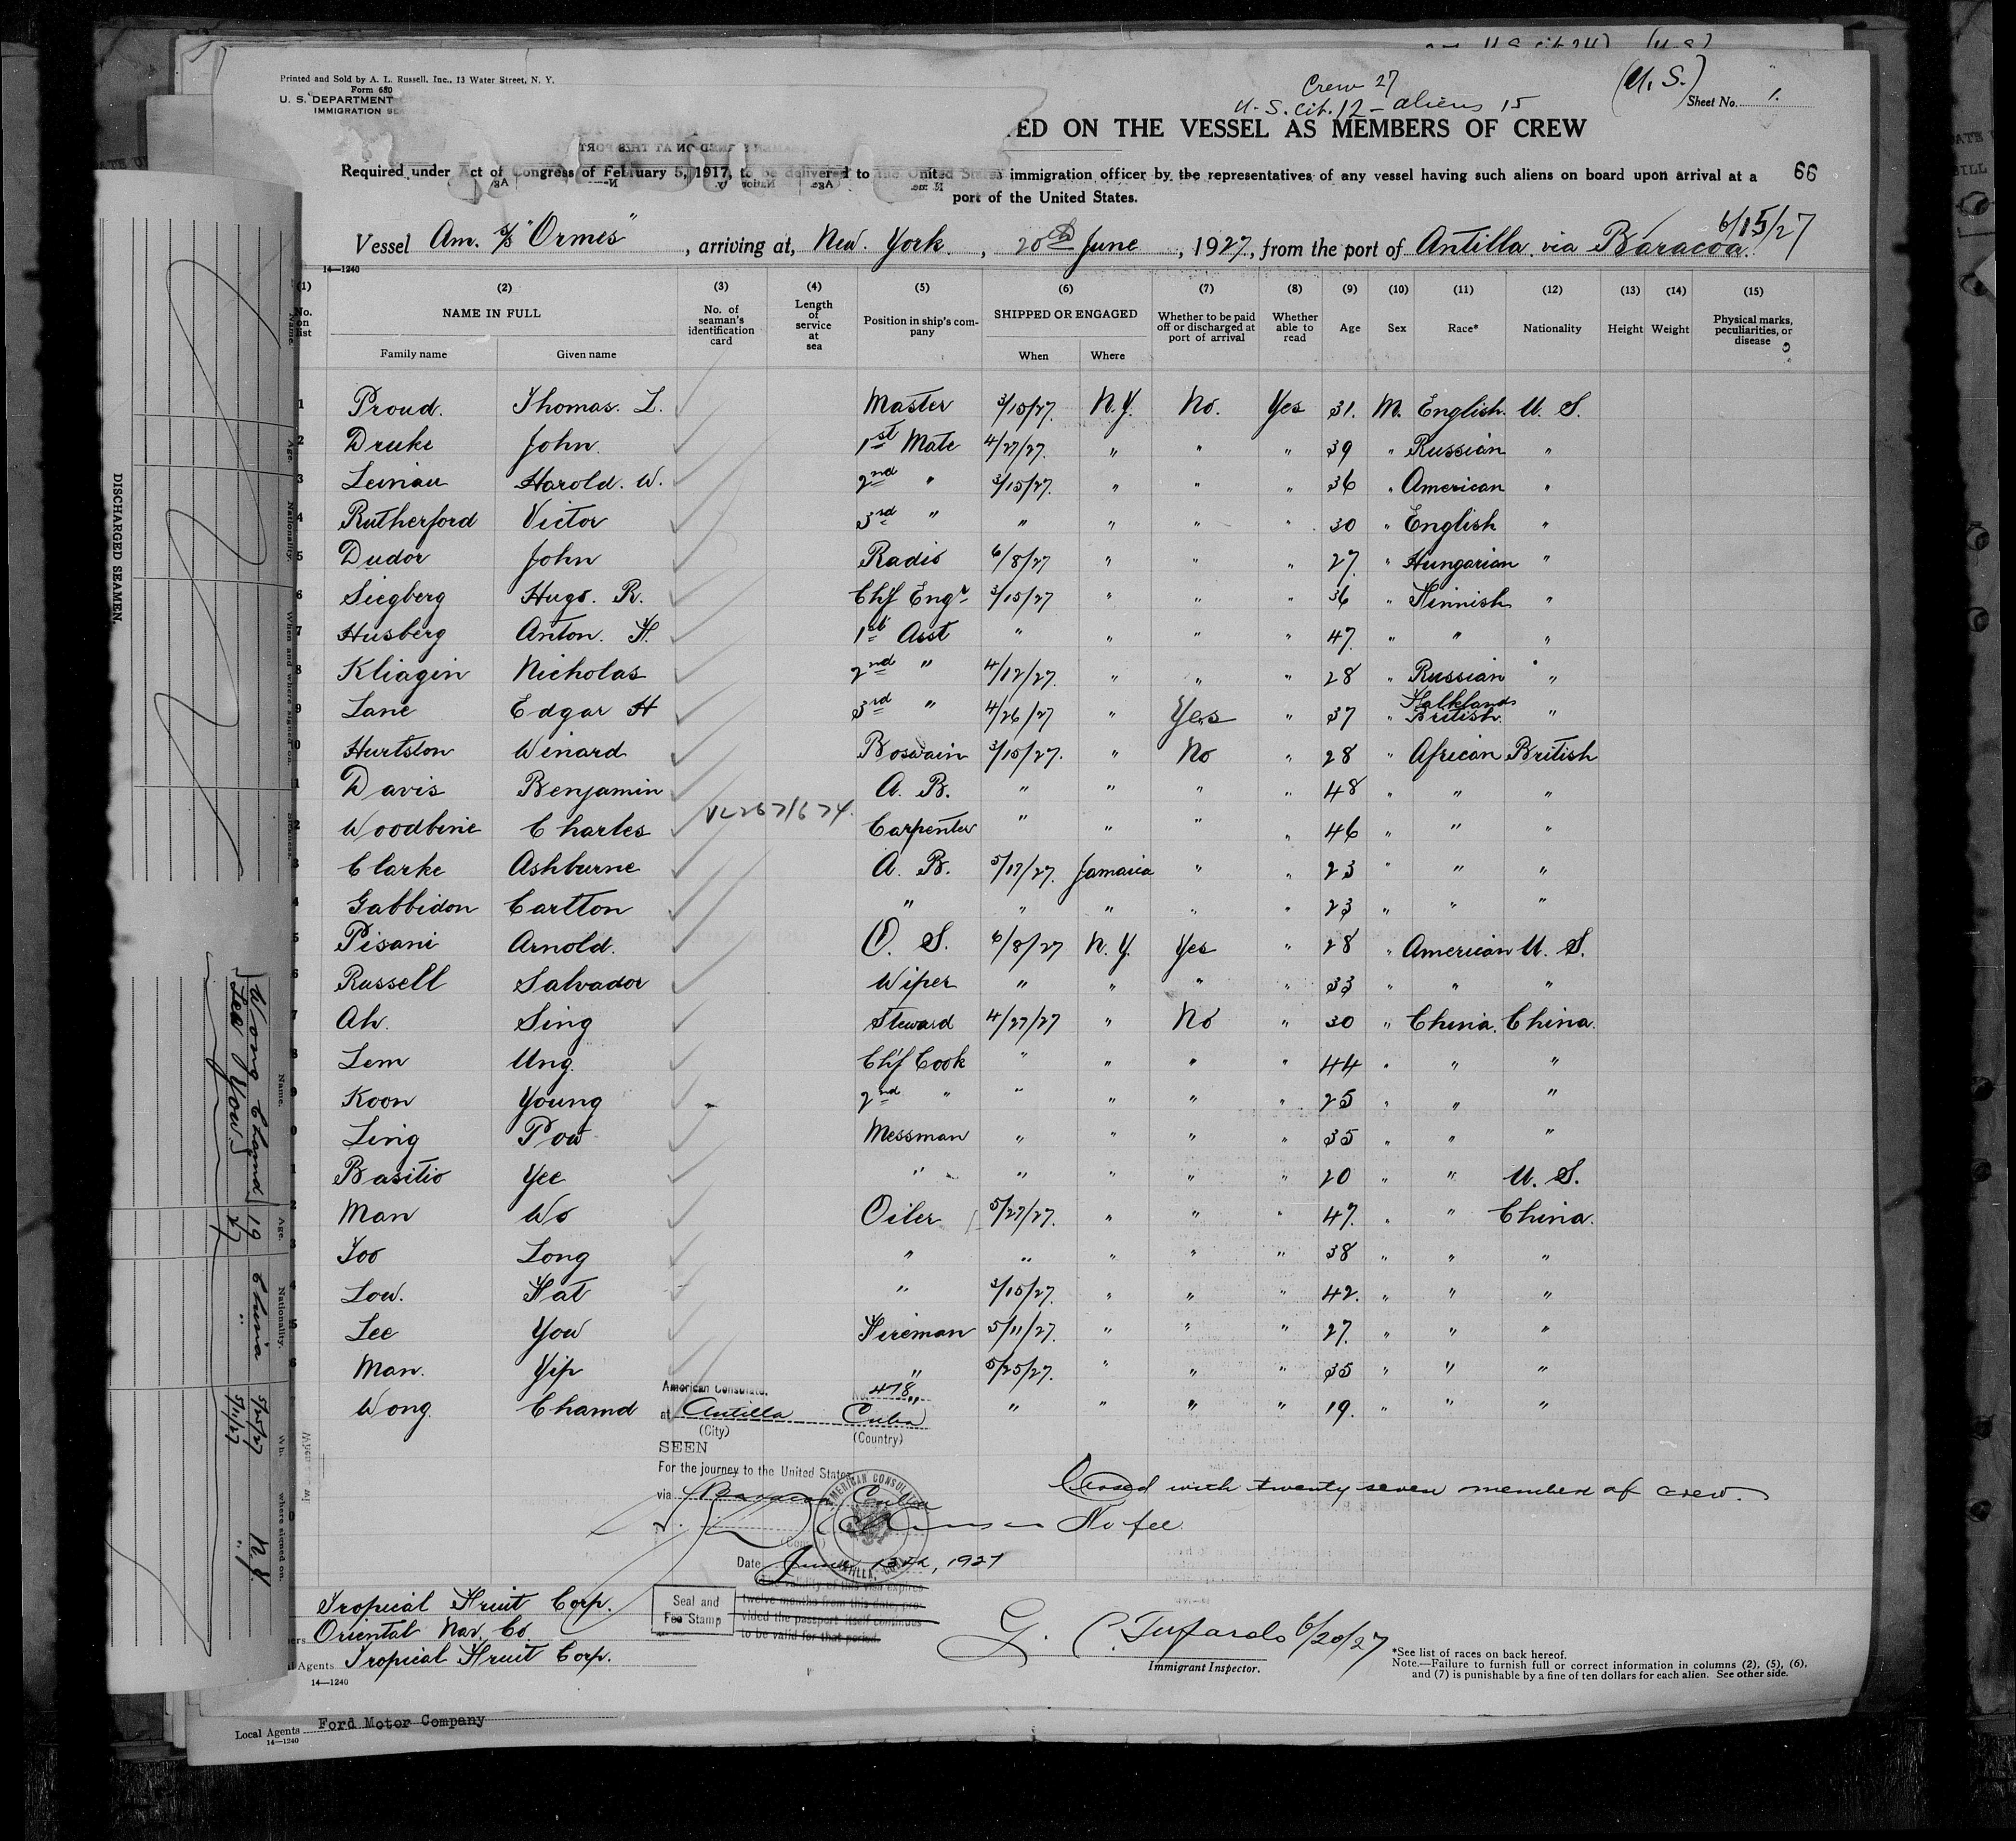 Printed and Sold by A. L. Russell, Inc., 13 Water Street, N. Y.
Form 680
U. S. DEPARTMENT
IMMIGRATION SE
Crew 27
U.S. Cit. 12 - aliens 15
(U. S.)
Sheet No. 1.
ED ON THE VESSEL AS MEMBERS OF CREW
Required under Act of Congress of February 5, 1917, to be delivered to the United States immigration officer by the representatives of any vessel having such aliens on board upon arrival at a
port of the United States.
66
6/15/27
Vessel Am. S/S "Ormes", arriving at, New York, 20th June, 1927, from the port of Antilla via Baracoa.
14—1240
(1) (2) (3) (4) (5) (6) (7) (8) (9) (10) (11) (12) (13) (14) (15)
No. on list NAME IN FULL Family name Given name No. of seaman's identification card Length of service at sea Position in ship's company SHIPPED OR ENGAGED When Where Whether to be paid off or discharged at port of arrival Whether able to read Age Sex Race* Nationality Height Weight Physical marks, peculiarities, or disease
1 Proud. Thomas. L. Master 3/15/27. N.Y. No. Yes 31. M. English. U. S.
2 Druke John. 1st Mate 4/27/27. " " " 39 " Russian "
3 Leinau Harold. W. 2nd " 3/15/27. " " " 36 " American "
4 Rutherford Victor 3rd " " " " " 30 " English "
5 Dudor John Radio 6/8/27 " " " 27. " Hungarian "
6 Siegberg Hugo. R. Chf Engr 3/15/27 " " " 36 " Finnish "
7 Husberg Anton. F. 1st Asst " " " " 47. " " "
8 Kliagin Nicholas 2nd " 4/12/27. " " " 28 " Russian "
9 Lane Edgar H 3rd " 4/26/27 " Yes " 37 " Falklands British. "
0 Hurtston Winard Boswain 3/15/27. " No " 28 " African British
1 Davis Benjamin A. B. " " " " 48 " " "
2 Woodbine Charles Carpenter " " " " 46 " " "
3 Clarke Ashburne A. B. 5/17/27. Jamaica " " 23 " " "
4 Gabbidon Carlton " " " " " 23 " " "
5 Pisani Arnold. O. S. 6/8/27 N.Y. Yes " 28 " American U. S.
6 Russell Salvador Wiper " " " " 33 " " "
7 Ah. Sing Steward 4/27/27 " No " 30 " China. China.
8 Lem Ung. Chf Cook " " " " 44 " " "
9 Koon Young 2nd " " " " " 25 " " "
0 Ling Pow Messman " " " " 35 " " "
1 Basitio Yee " " " " " 20 " " U. S.
2 Man Wo Oiler 5/27/27. " " " 47. " " China.
3 Too Long " " " " " 38 " " "
4 Low. Fat " 3/15/27. " " " 42. " " "
5 Lee You Fireman 5/11/27. " " " 27. " " "
6 Man. Yip " 5/25/27. " " " 35 " " "
Wong. Chamd " " " " " 19. " " "
American Consulate. No. 478
at Antilla Cuba
(City) (Country)
SEEN
For the journey to the United States
via Baracoa Cuba
Closed with twenty seven members of crew.
No fee
Date June 13th, 1927
AMERICAN CONSULATE
ANTILLA, CUBA
Seal and
Fee Stamp
The validity of this visa expires
twelve months from this date, pro-
vided the passport itself continues
to be valid for that period.
Tropical Fruit Corp.
Oriental Nav. Co.
Agents Tropical Fruit Corp.
14—1240
6/20/27
Immigrant Inspector.
*See list of races on back hereof.
Note.—Failure to furnish full or correct information in columns (2), (5), (6),
and (7) is punishable by a fine of ten dollars for each alien. See other side.
Local Agents Ford Motor Company
14—1240
DISCHARGED SEAMEN.
Name. Age. Nationality. When and where signed on.
Name. Age. Nationality. where signed on.
Wong Chamd 19 China 5/25/27 N.Y.
Lee You 27 " 5/11/27 "